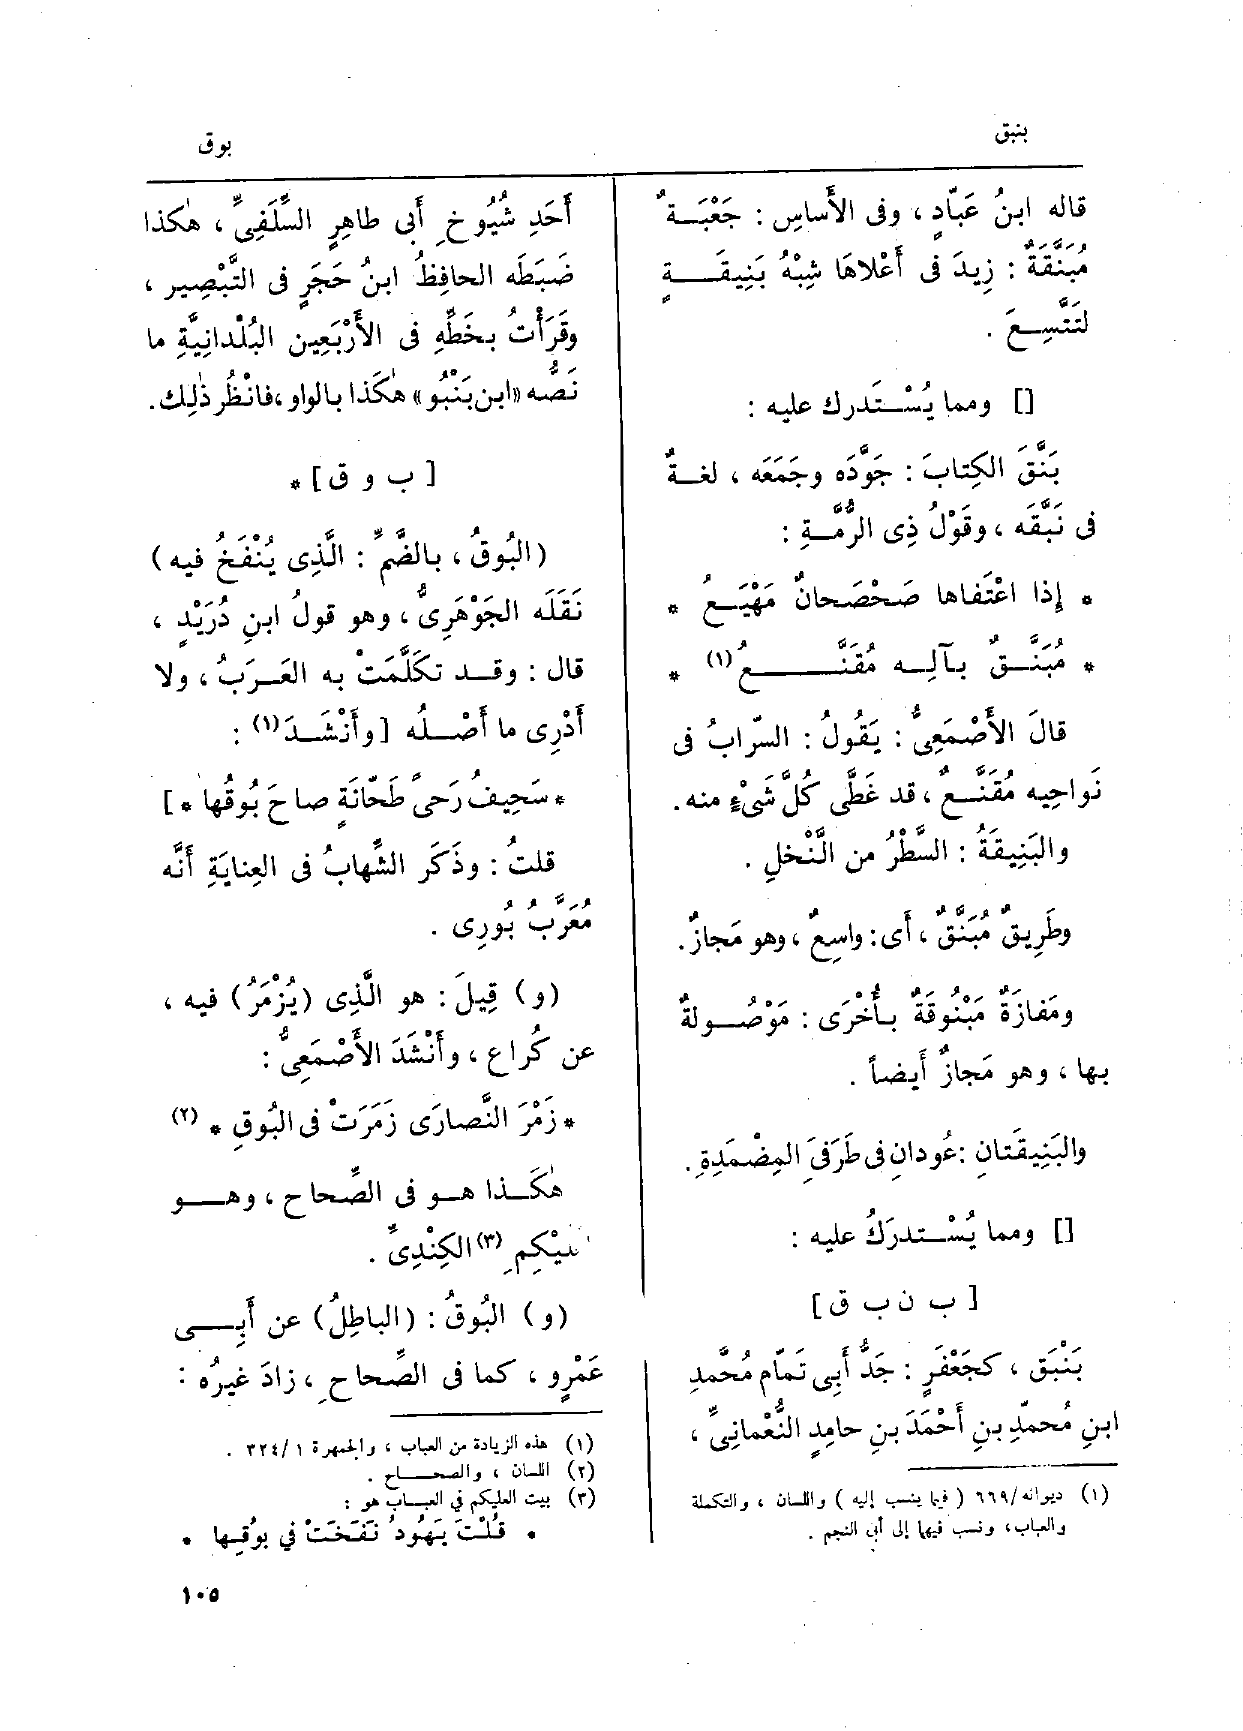 بنبق
بوق
قاله ابنُ عَبّادٍ ، وفى الأَساسِ : جَعْبَــةٌ
مُبَنَّقَةٌ : زِيدَ فى أَعْلاهَا شِبْهُ بَنِيقَــــةٍ
لتَتَّسِــعَ .
[] ومما يُسْــتَدرك عليه :
بَنَّقَ الكِتابَ : جَوَّدَه وجَمَعَه ، لغــةٌ
فى نَبَّقَه ، وقَوْلُ ذِى الرُّمَّــةِ :
* إِذا اعْتَفاها صَحْصَحانٌ مَهْيَــعُ *
* مُبَنَّــقٌ بآلِــه مُقَنَّــــــــعُ (١) *
قالَ الأَصْمَعِىُّ : يَقُولُ : السّرابُ فى
نَواحِيه مُقَنَّــعٌ ، قد غَطَّى كُلَّ شَىْءٍ منه.
والبَنِيقَةُ : السَّطْرُ من النَّخلِ .
وطَرِيقٌ مُبَنَّقٌ ، أَى: واسِعٌ ، وهو مَجازٌ.
ومَفازَةٌ مَبْنُوقَةٌ بأُخْرَى : مَوْصُــولةٌ
بها ، وهو مَجازٌ أَيضاً .
والبَنِيقَتانِ :عُودانِ فى طَرَفَىِ المِضْمَدَةِ .
[] ومما يُسْــتدرَكُ عليه :
[ ب ن ب ق ]
بَنْبَق ، كجَعْفَرٍ : جَدُّ أَبِى تَمّام مُحَمَّدِ
ابنِ مُحمّدِ بنِ أَحْمَدَ بنِ حامِدٍ النُّعْمانِىِّ ،
(١) ديوانه/٦٦٩ ( فيما ينسب إليه ) واللسان ، والتكملة
والعباب، ونسب فيها إلى أبى النجم .
أَحَدِ شُيُوخِ أَبِى طاهِرٍ السِّلَفِىِّ ، هٰكذا
ضَبَطَه الحافِظُ ابنُ حَجَرٍ فى التَّبْصِير ،
وقَرَأْتُ بخَطِّهِ فى الأَرْبَعِين البُلْدانِيَّةِ ما
نَصُّه «ابن بَنْبُو» هٰكَذا بالواو ،فانْظُر ذٰلِك.
[ ب و ق ] *
(البُوقُ ، بالضَّمِّ : الَّذِى يُنْفَخُ فيه)
نَقَلَه الجَوْهَرِىُّ ، وهو قولُ ابنِ دُرَيْدٍ ،
قال : وقــد تَكَلَّمَتْ به العَرَبُ ، ولا
أَدْرِى ما أَصْــلُه [ وأَنْشَــدَ(١) :
* سَحِيفُ رَحىً طَحّانَةٍ صاحَ بُوقُها * ]
قلتُ : وذَكَر الشِّهابُ فى العِنايَةِ أَنَّه
مُعَرَّبُ بُورِى .
(و) قِيلَ : هو الَّذِى (يُزْمَرُ) فيه ،
عن كُراع ، وأَنْشَدَ الأَصْمَعِىُّ :
* زَمْرَ النَّصارَى زَمَرَتْ فى البُوقِ * (٢)
هٰكَــذا هــو فى الصِّحاحِ ، وهــــو
(٣) الكِنْدِىِّ .
(و) البُوقُ : (الباطِلُ) عن أَبِــــى
عَمْرٍو ، كما فى الصِّحاحِ ، زادَ غيرُه :
(١) هذه الزيادة من العباب ، والجمهرة ١ /٣٢٤ .
(٢) اللسان ، والصحــــاح .
(٣) بيت العليكم في العبــاب هو :
* قُلْتَ يَهُودُ نَفَخَتْ في بوُقِــها *
١٠٥